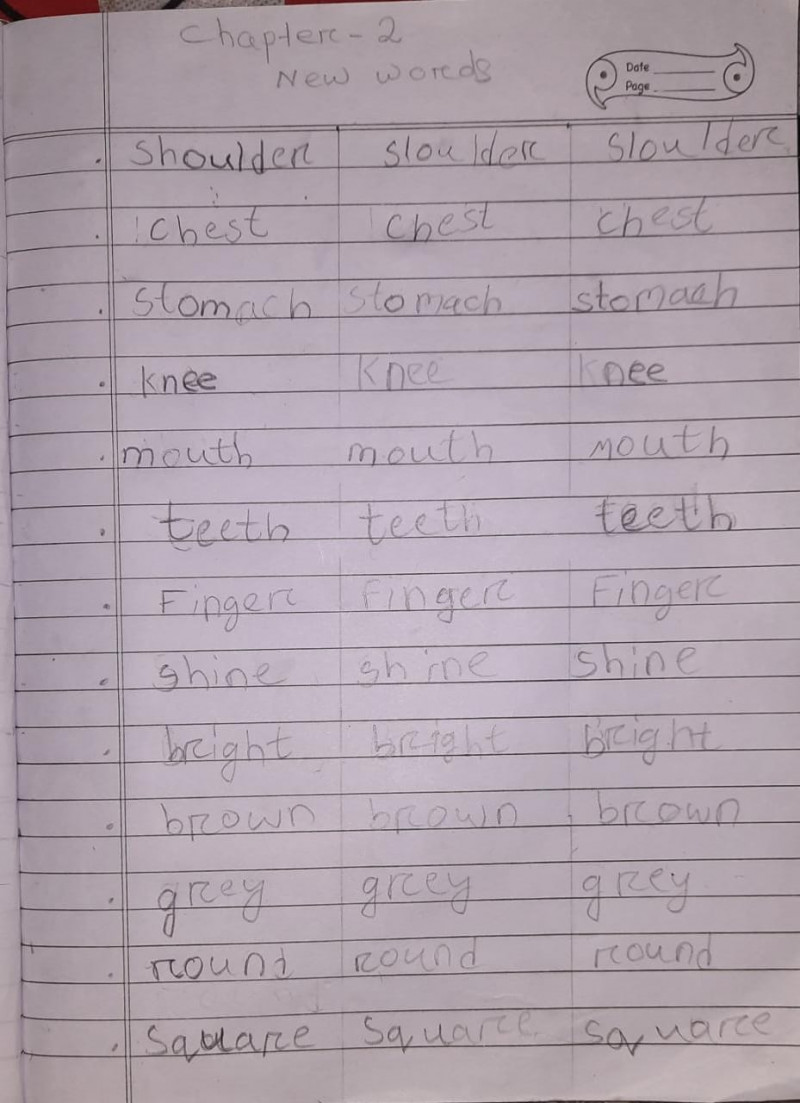 Chapter - 2
New words
Date
Page
. Shoulder sloulder sloulder
. chest chest chest
. stomach stomach stomach
. knee knee knee
. mouth mouth mouth
. teeth teeth teeth
. Finger Finger Finger
. shine shine shine
. bright bright bright
. brown brown brown
. grey grey grey
. round round round
. square square square